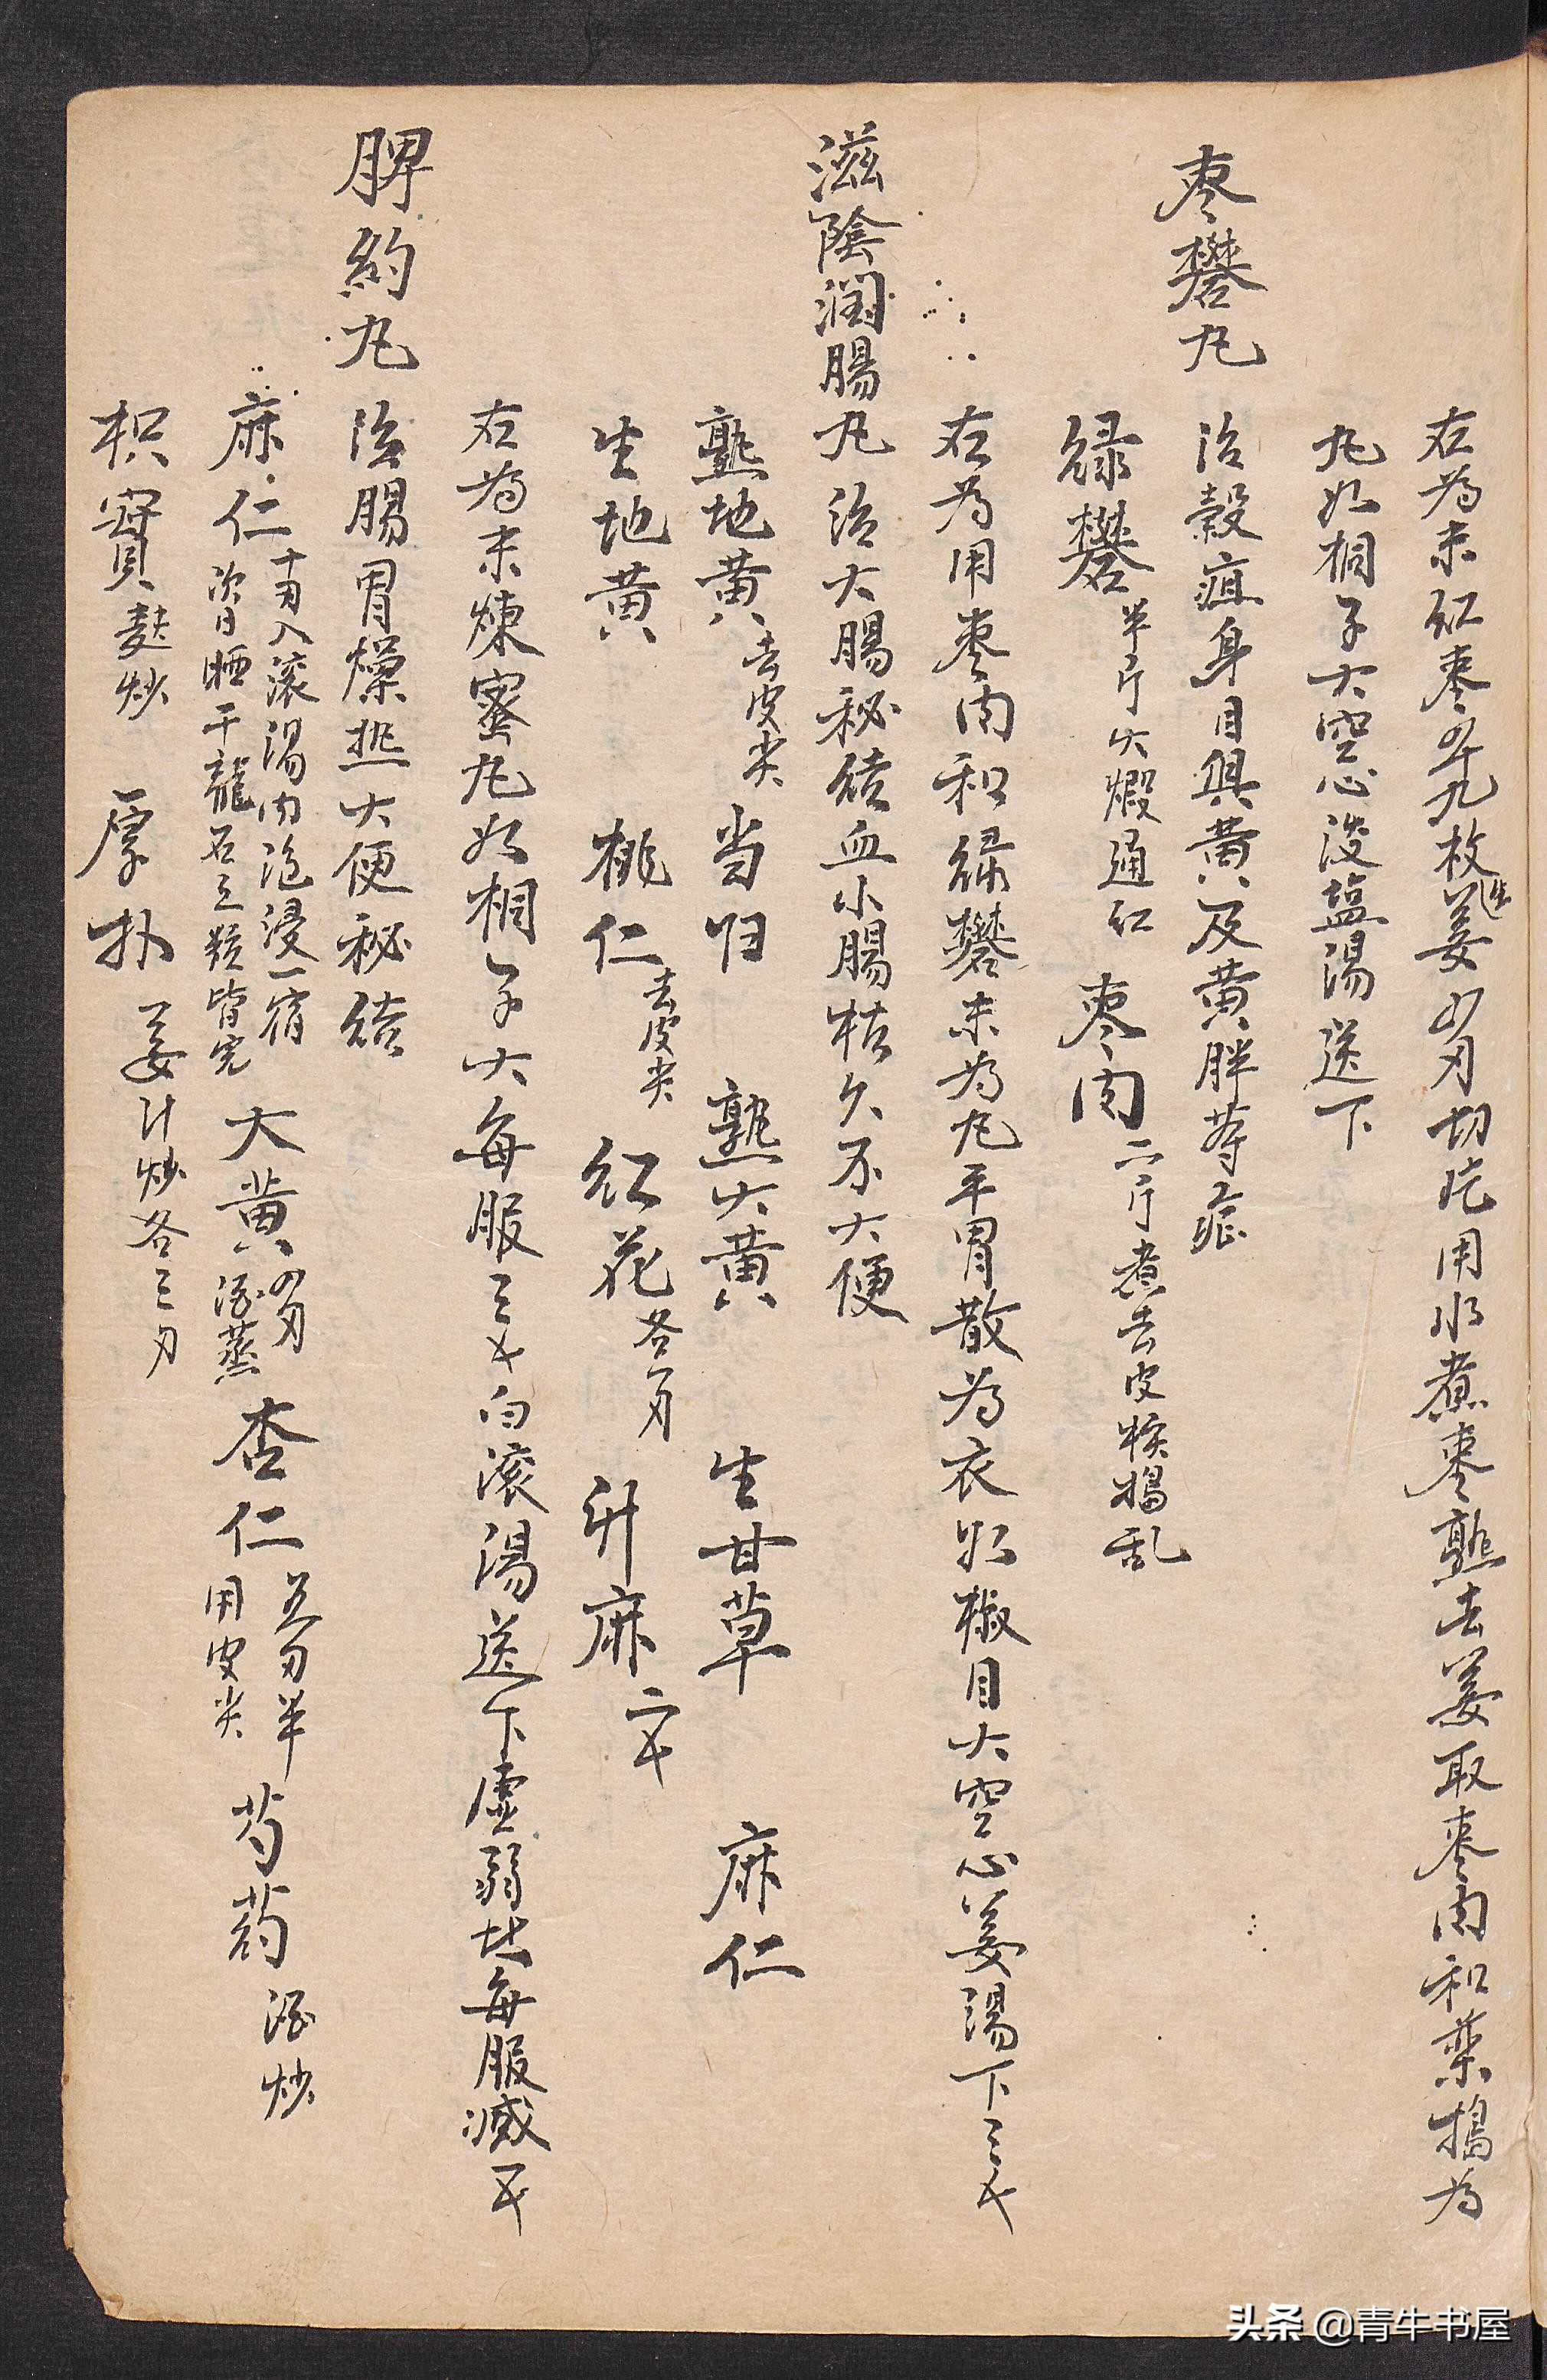 右為末紅棗四十九枚生姜四两切片用水煮棗熟去姜取棗肉和藥搗為
丸如桐子大空心淡塩湯送下
枣礬丸
治穀疸身目俱黄及黄胖等症
緑礬半斤火煅通红 枣肉二斤煮去皮核搗乱
右為用枣肉和緑礬末為丸平胃散為衣如椒目大空心姜湯下三钱
滋陰潤腸丸 治大腸秘结血小腸枯久不大便
熟地黄去皮尖 当归 熟大黄 生甘草 麻仁
生地黄 桃仁去皮尖 红花各一两 升麻二钱
右為末煉蜜丸如桐子大每服三钱白滚湯送下虚弱者每服减一钱
脾約丸 治腸胃燥熱大便秘结
麻仁十两入滚湯内泡浸一宿
次日晒干龍石三類皆完 大黄四两酒蒸 杏仁五两半
用皮尖 芍药酒炒
枳實麸炒 厚朴姜汁炒各三两
头条 @青牛书屋